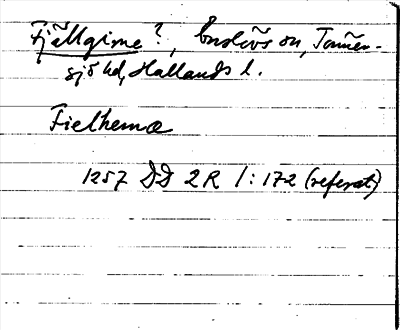 Fjällgirne?, Enslövs sn, Tönner-
sjö hd, Hallands l.
Fielhemæ
1257 DD 2R 1:172 (referat)